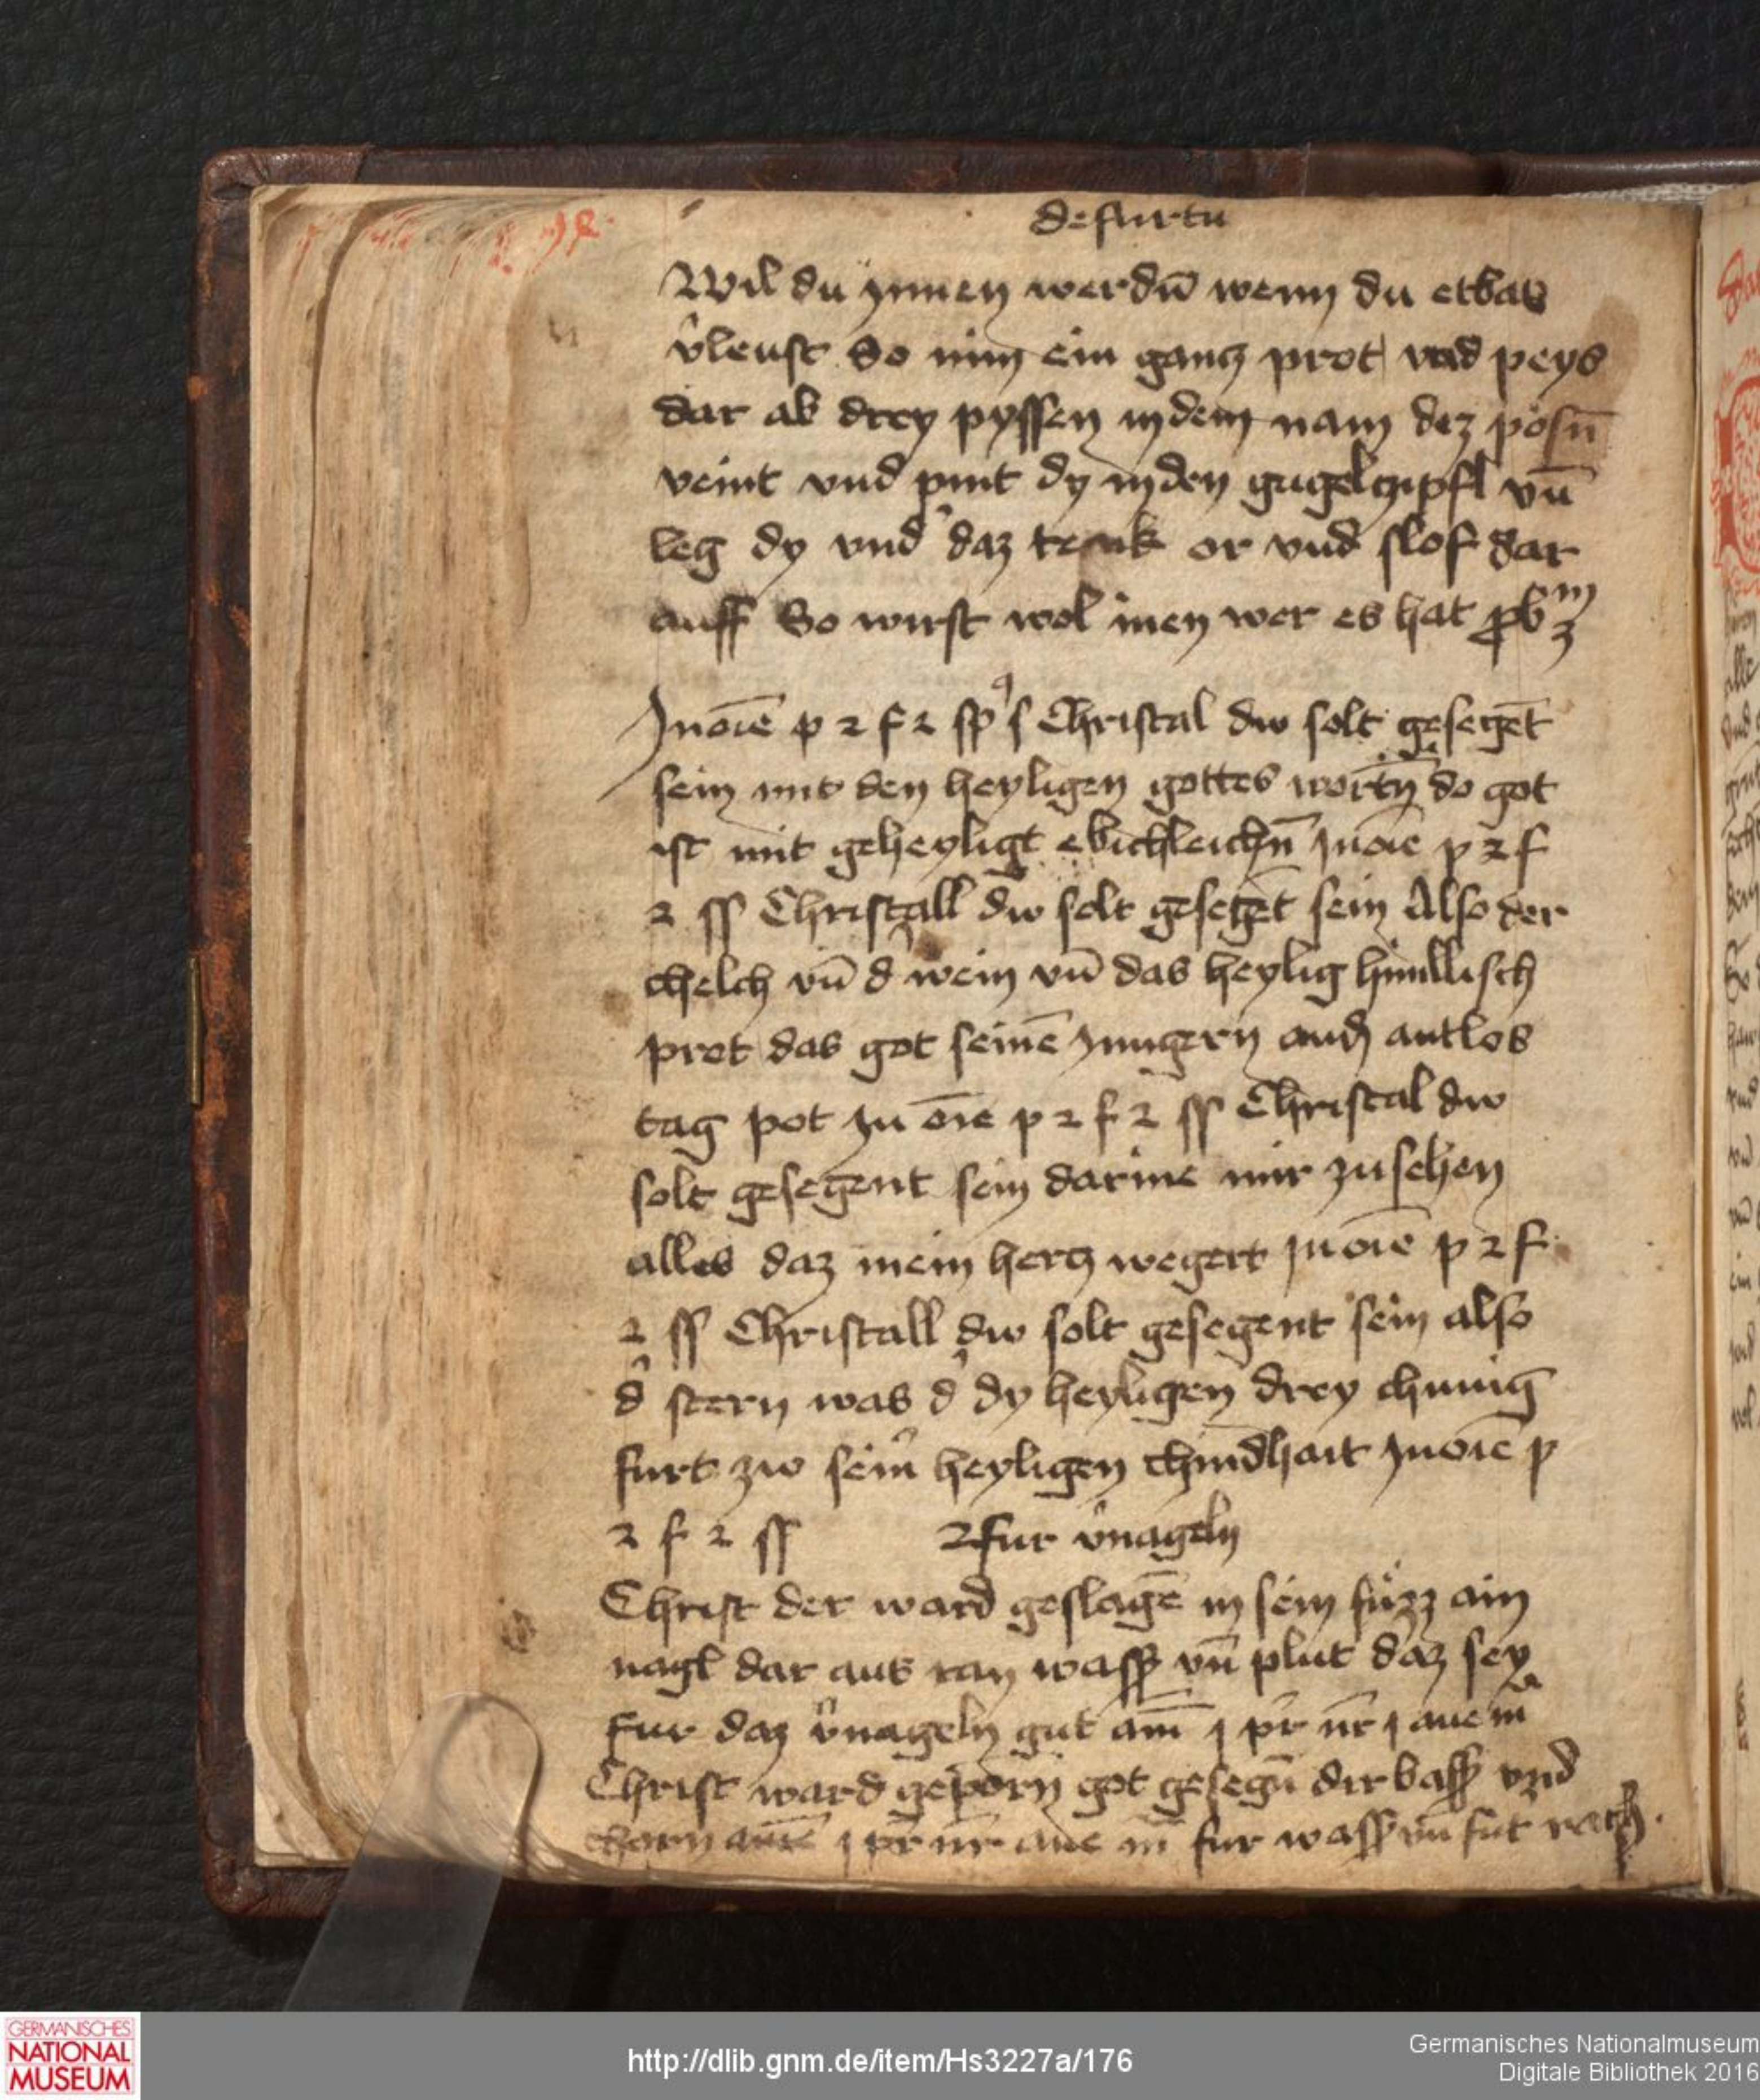 de furtu
Wil du ynnen werdn̄ wenn du etbas
v̉leust So nim ein gancz prot vnd peys
dar ab drey pyssen in dem nam dez pösn̄
veint vnd pint dy in den gugelczipfl vn̄
leg dy vnd̉ daz tenk or vnd slof dar
auff So wirst wol inen wer es hat
In oīe p 2 f 2 sp̉s Christal dw solt gesegēt
sein mit den heyligen gottes wortn̄ do got
ist mit geheyligt ebichleichn̄ In oīe p 2 f
2 ss Christall dw solt gesegēt sein Also der
chelch vn̄ d̉ wein vn̄ das heylig himllisch
prot das got seinē Jungern an antlos
tag pot In oīe p 2 f 2 ss Christal dw
solt gesegent sein darine mir zu sehen
alles daz mein hercz wegert In oīe p 2 f
2 ss Christall dw solt gesegent sein also
d̉ stern was d̉ dy heyligen drey chunig
furt zw sein̉ heyligen chindhait In oīe p
2 f 2 ss fur v̉nageln
Christ der ward geslagē in sein füzz ain
nagl dar aus ran wass̉ vn̄ plut daz sey
fur daz v̉nageln gut am̄ j pr̄ nr̄ j aue ma
Christ ward geporn got gesegn̄ dir bass̉ vnd
chorn am̄e j pr̄ nr̄ aue m̄ fur wass̉ vn̄ fut rach
GERMANISCHES
NATIONAL
MUSEUM
http://dlib.gnm.de/item/Hs3227a/176
Germanisches Nationalmuseum
Digitale Bibliothek 2016